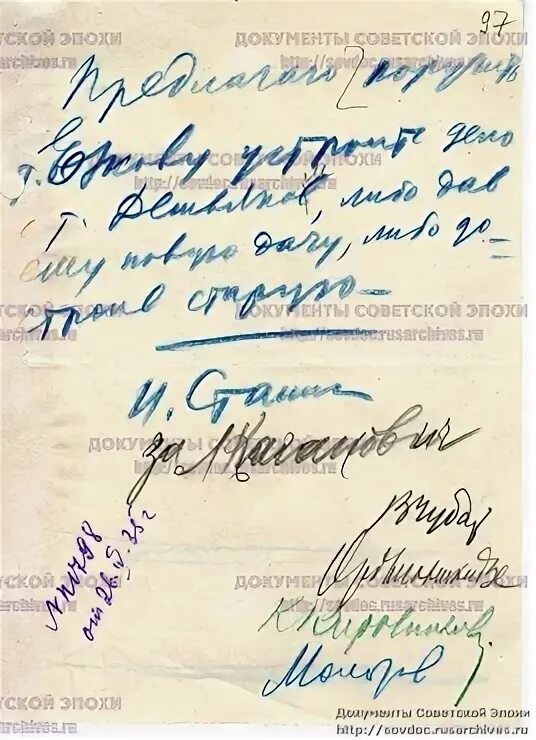 97
Предлагаю поручить
т. Ежову устроить дело
т. Демьянов, либо дав
ему новую дачу, либо до-
троив старую
И. Сталин
за Л. Каганович
В Чубар
Орджоникидзе
К Ворошилов.
Молотов
от 26
35 г
ДОКУМЕНТЫ СОВЕТСКОЙ ЭПОХИ
http://sovdoc.rusarchives.ru
Документы Советской Эпохи
http://sovdoc.rusarchives.ru